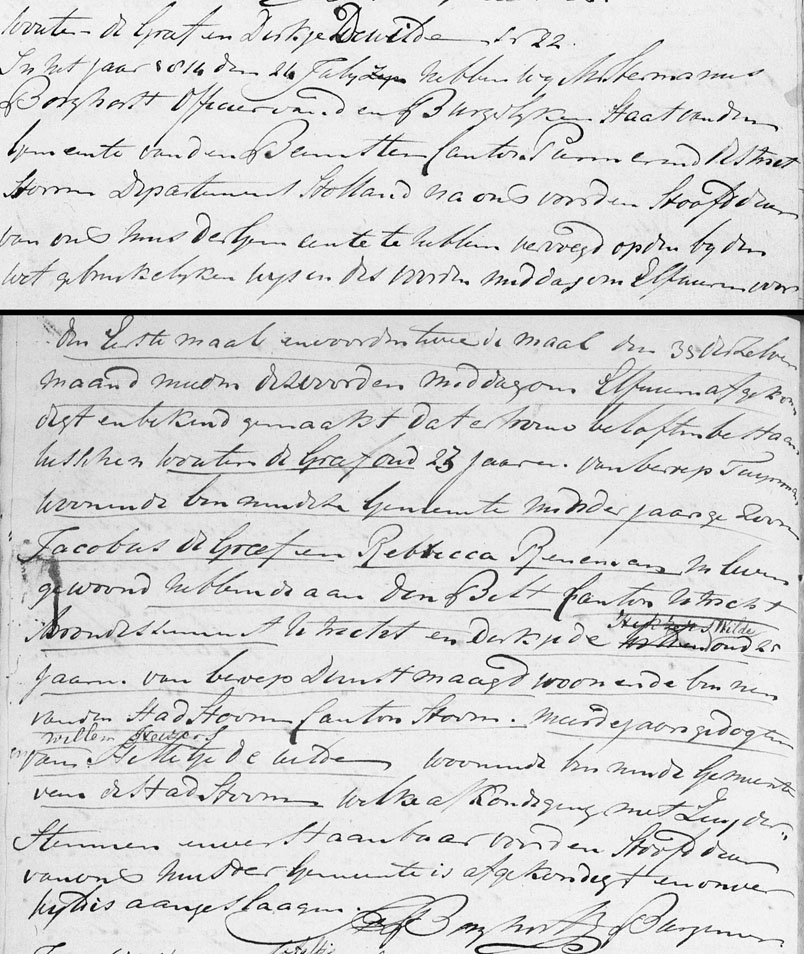 Wouter de Graf en Dirkje Dewilde N 22.
In het jaar 1814 den 24 July hebben wy Ms Hermanus
Borghorst Officier van den Burgelyken Staat van den
Gemeente van den Beemster Canton Purmerend District
Hoorn Departement Holland na ons voor den Hoofd deur
van ons huis der Gemeente te hebben vervoegd op den by den
wet gebruikelyken wyse en des voorden middag om Elf uuren voor
den Eerste maal en voorden twee de maal den 35 derzelver
maand mede des voorden middag om Elf uuren afgekon
digt en bekend gemaakt dat er trouw beloften bestaan
tusschen Wouter de Graf oud 23 jaaren van beroep Tuynman
woonende binnen dese Gemeente minder jaarige Zoon
Jacobus de Graef en Rebbecca Reneman in leven
gewoond hebbende aan den Bilt Canton Utrecht
Arrondissement Utrecht en Dirkje de Wilde oud 25
jaaren van beroep Dienst maagd woonende binnen
van den Stad Hoorn Canton Hoorn meerdejaarige dogter
Willem Keizers
van Hilletje de wilde woonende binnen de Gemeente
van de Stad Hoorn welke afkondiging met Luyder
Stemmen en verstaanbaar voor den Hoofd deur
van ons huis der Gemeente is afgekondigt en onver
hyld is aangeslaagen.
Borghorst Burgemr